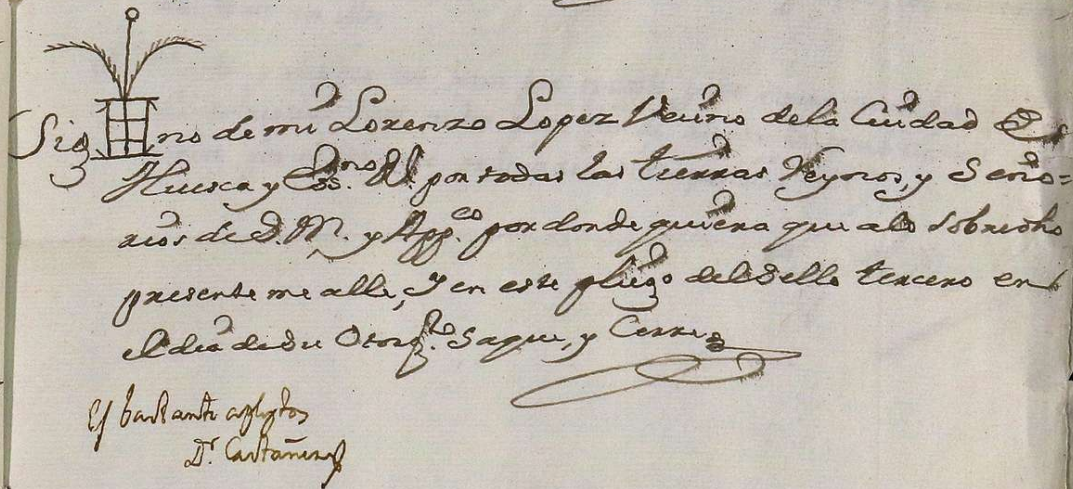 Sig no de mi Lorenzo Lopez Vecino de la Ciudad de
Huesca y Ess.no Rl. por todas las tierras Reynos, y Seño=
rios de S. M. y App.co por donde quiera que a lo sobredho
presente me alle, Y en este pliego del Sello tercero en
el dia de su Otorg.to Saque, y Cerre
Es bastante
Dr. Castañera